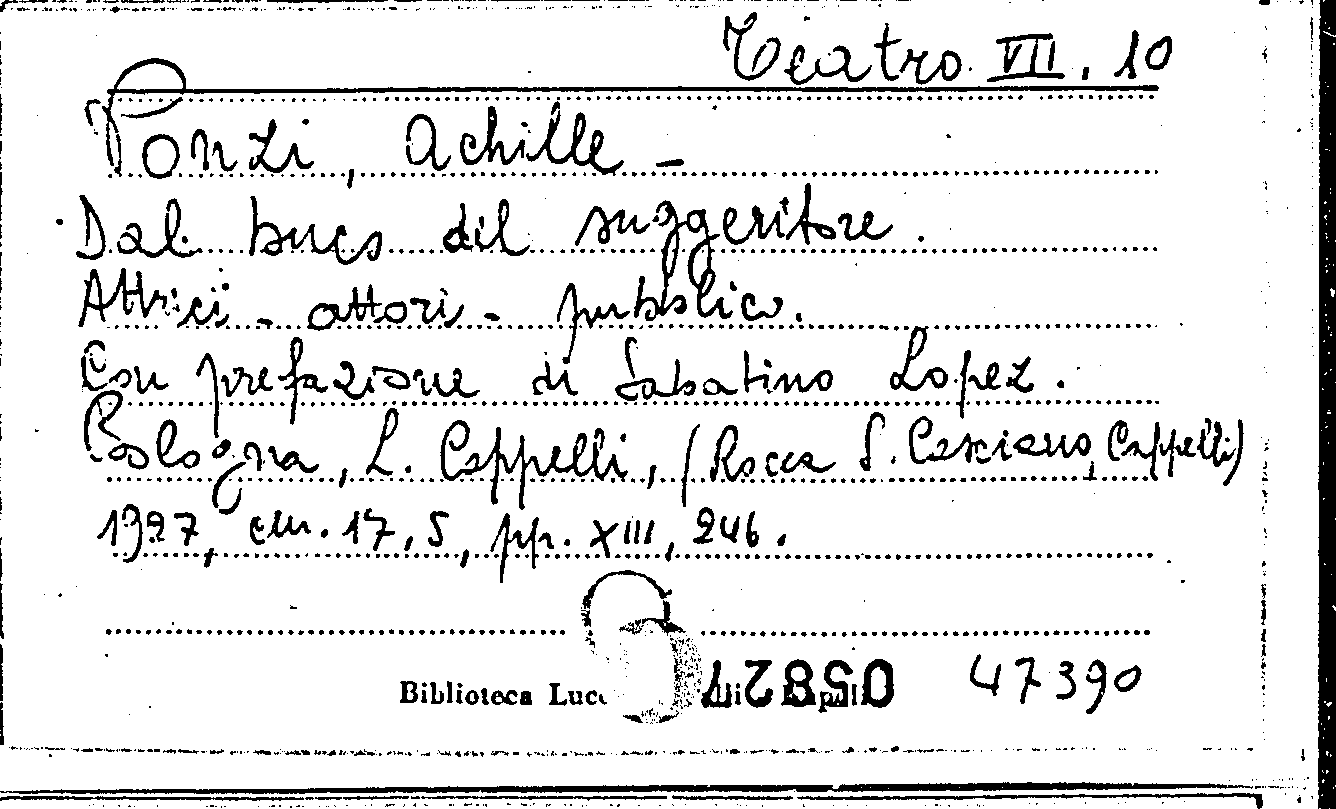 Teatro VII. 10
Ponzi, Achille -
Dal buco del suggeritore.
Attrici - attori - pubblico.
Con prefazione di Sabatino Lopez.
Bologna, L. Cappelli, (Rocca S. Casciano, Cappelli)
1927, cm. 17,5, pp. XIII, 246.
Biblioteca Lucc
05827 47390